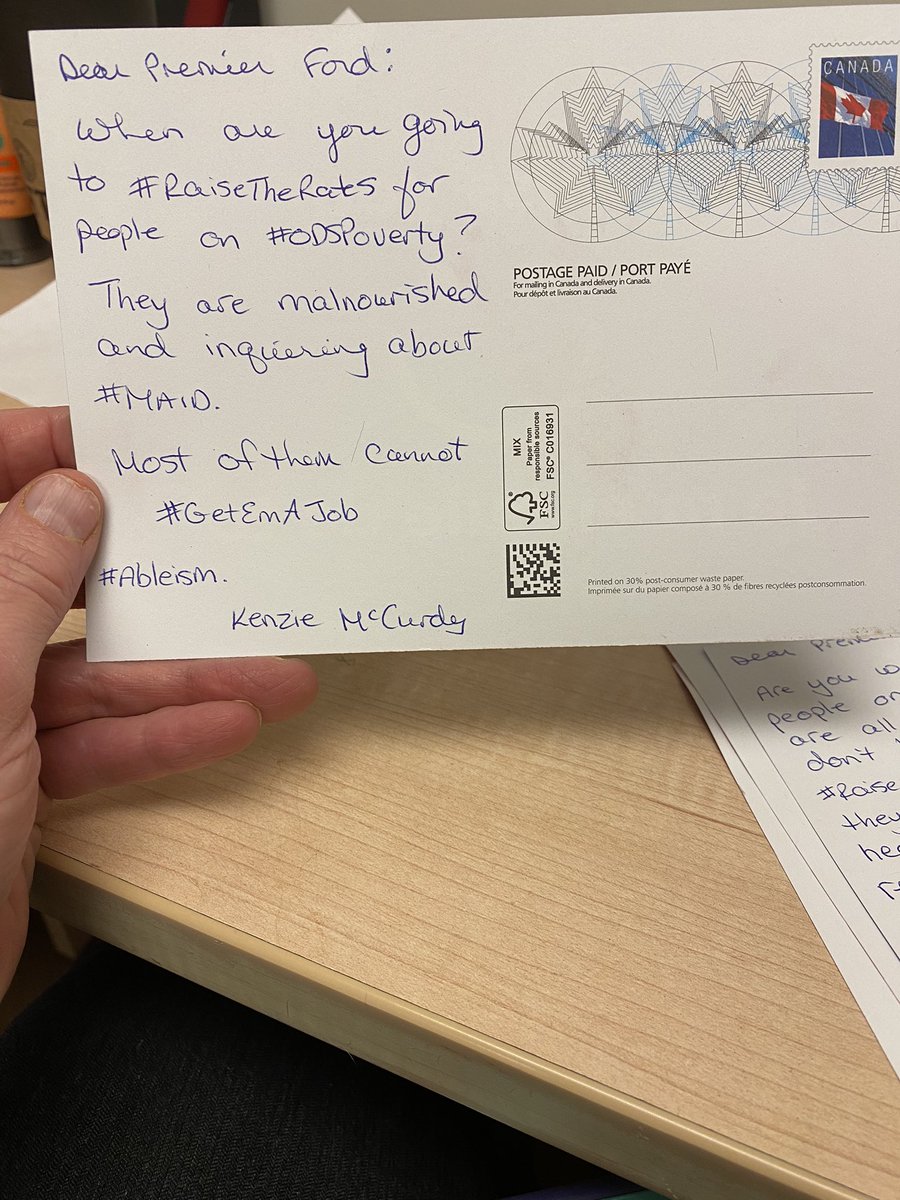 Dear Premier Ford:
When are you going
to #RaiseTheRates for
people on #ODSPoverty?
They are malnourished
and inquiering about
#MAID.
Most of them cannot
#GetEmAJob
#Ableism.
Kenzie McCurdy
CANADA
POSTAGE PAID / PORT PAYÉ
For mailing in Canada and delivery in Canada.
Pour dépôt et livraison au Canada.
MIX
Paper from
responsible sources
FSC® C016931
FSC
www.fsc.org
Printed on 30% post-consumer waste paper.
Imprimée sur du papier composé à 30 % de fibres recyclées postconsommation.
Dear
Are you
people
are all
don't
they